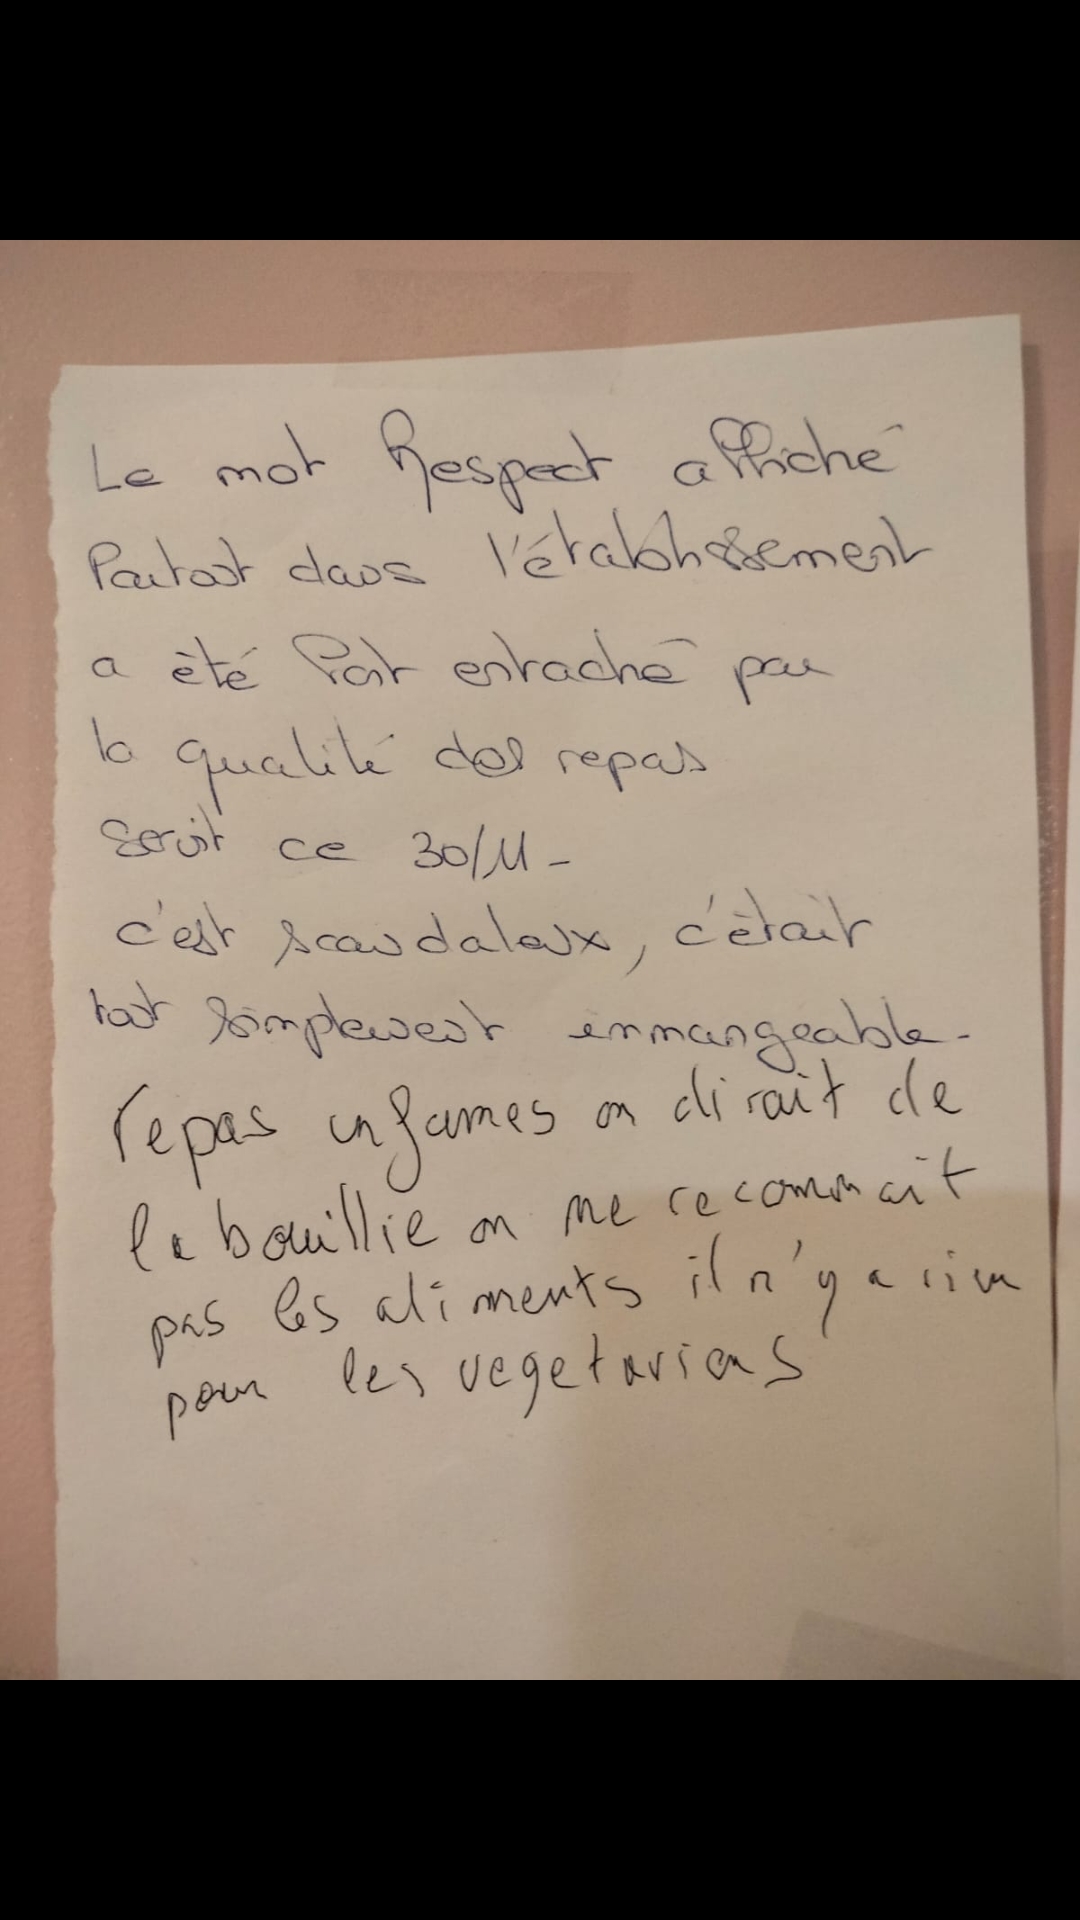 Le mot Respect affiché
Partout dans l'établissement
a été fort entaché par
la qualité des repas
servit ce 30/11-
c'est scandaleux, c'était
tout simplement immangeable-
repas infames on dirait de
la bouillie on ne reconnait
pas les aliments il n'y a rien
pour les vegetariens